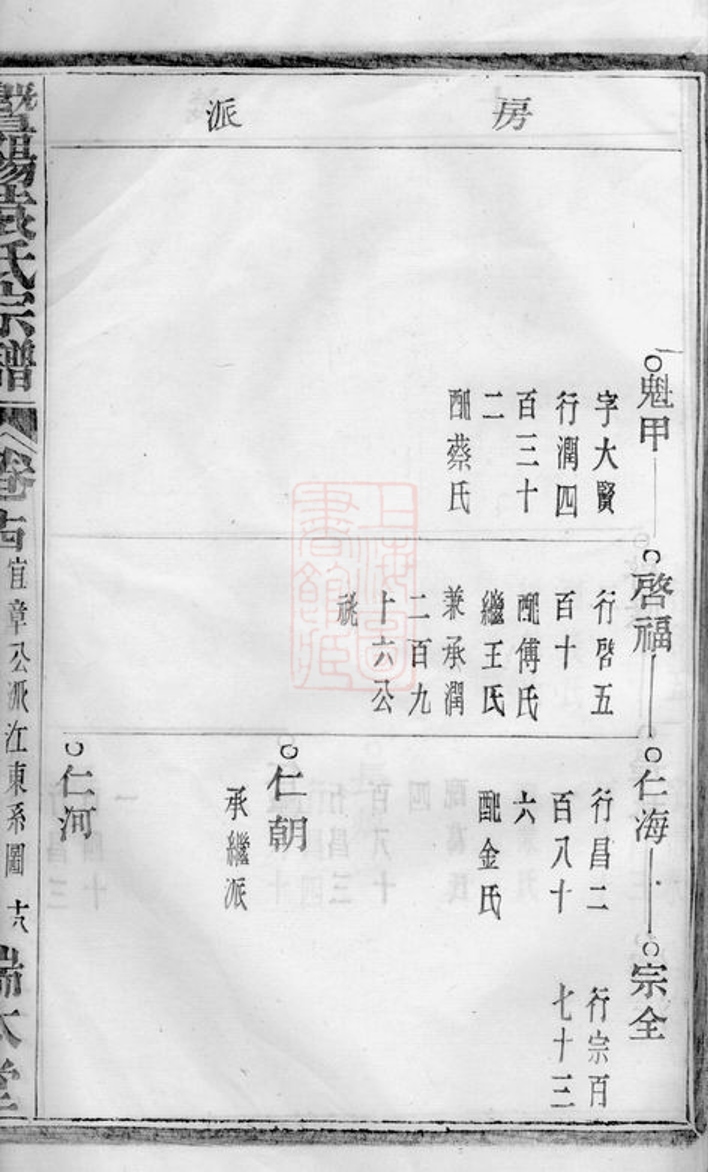 房派
魁甲
字大賢
行潤四
百三十
二
配蔡氏
啓福
行啓五
百十
配傅氏
繼王氏
兼承潤
二百九
十六公
祧
仁海
行昌二
百八十
六
配金氏
仁朝
承繼派
仁河
宗全
行宗百
七十三
暨陽
氏宗譜
卷十四
宜章公派江東系圖
十八
上海圖書館藏